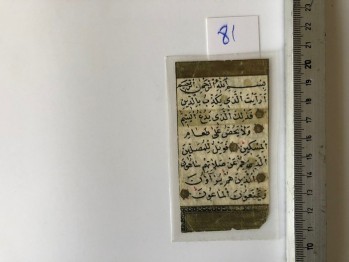 81
بسم الله الرحمن الرحيم
أرأيت الذي يكذب بالدين
فذلك الذي يدع اليتيم
ولا يحض على طعام
المسكين فويل للمصلين
الذين هم عن صلاتهم ساهون
الذين هم يراؤن
ويمنعون الماعون
10
20
22